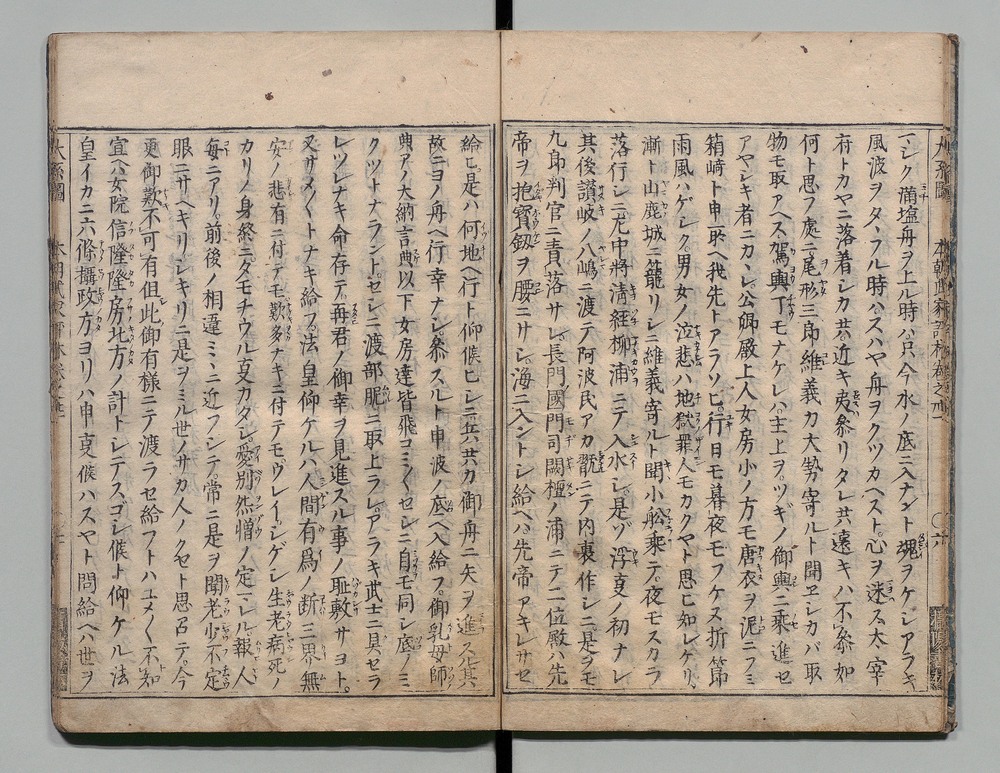 マシク備塩舟ヲ上ル時ハ只今水ノ底ニ入ナント魂ヲケシアラキ
風波ヲタヽフル時ハスハヤ舟ヲクツカヘスト心ヲ迷ス太宰
府トカヤニ落着シカ共近キ夷参リタレ共遠キハ不参如
何ト思フ處ニ尾形三郎維義カ大勢寄ルト聞ヱシカバ取
物モ取アヘス駕輿丁モナケレハ主上ヲツギノ御輿ニ乗進セ
アヤシキ者ニカヽレ公卿殿上人女房小ノ方モ唐衣ヲ泥ニフミ
箱崎ト申所ヘ我先トアラソヒ行日モ暮夜モフケヌ折節
雨風ハゲシク男女ノ泣悲ハ地獄罪人モカクヤト思ヒ知レケリ
漸ト山鹿城ニ籠リシニ維義寄ルト聞小舩乗テ夜モスカラ
落行シニ左中將清經柳浦ニテ入水シ是ゾ浮夏ノ初ナレ
其後讃岐ノ八嶋ニ渡テ阿波民アカ翫ニテ内裏作シニ是ヲモ
九郎判官ニ責落サレ長門國門司關檀ノ浦ニテ二位殿ハ先
帝ヲ抱寳劔ヲ腰ニサシ海ニ入ントシ給ヘハ先帝アキレサセ
給ヒ是ハ何地ヘ行ト仰候ヒシニ兵共カ御舟ニ矢ヲ進ス化其
故ニヨノ舟ヘ行幸ナシ参スルト申波ノ底ヘ入給フ御乳母師
典アノ大納言典以下女房達皆飛コミ〱セシニ自モ同シ底ノミ
クツトナラントセシニ渡部眤ニ取上ラレアラキ武士ニ具セラ
レツレナキ命存テ再君ノ御幸ヲ見進スル事ノ耻敷サヨト
又サメ〱トナキ給フ法皇仰ケルハ人間有爲ノ断三界無
安ノ悲有ニ付テモ歎多ナキニ付テモウレイシゲシ生老病死ノ
カリノ身終ニタモチウル夏カタシ愛別怨憎ノ定マレル報人
毎ニアリ前後ノ相違ミヽニ近フシテ常ニ是ヲ聞老少不定
眼ニサヘキリシキリニ是ヲミル世ノサカ人ノクセト思召テ今
更御歎不可有但此御有様ニテ渡ラセ給フトハユメ〱不知
宜ヘハ女院信隆隆房北方ノ計トシテスゴシ候ト仰ケル法
皇イカニ六條攝政方ヨリハ申夏候ハスヤト問給ヘハ世ヲ